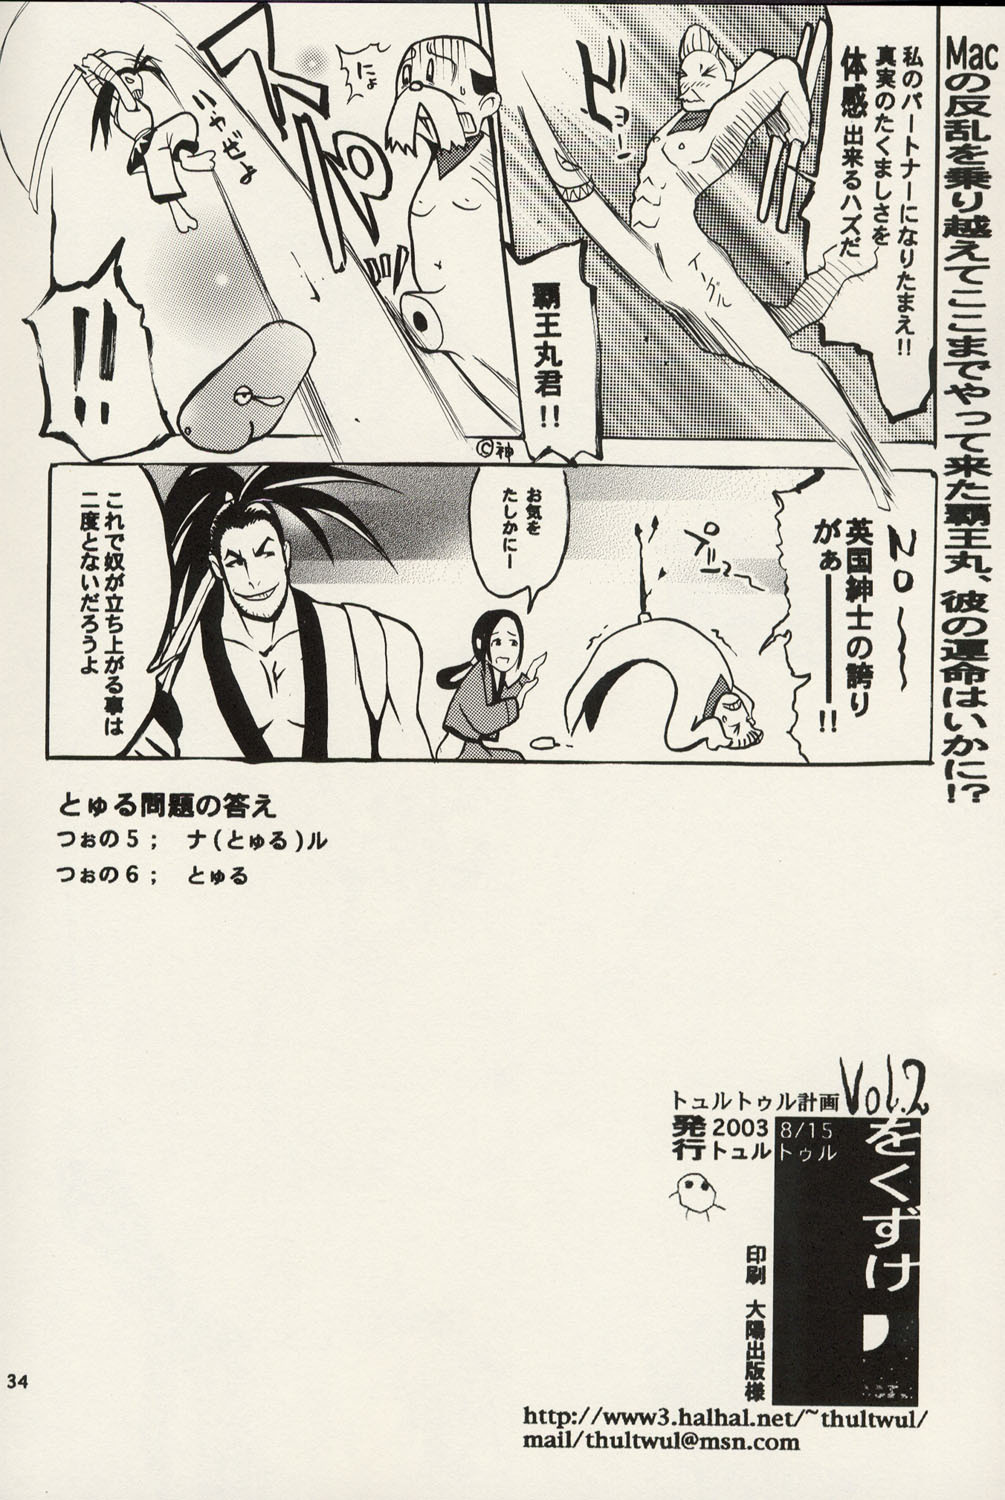 Macの反乱を乗り越えてここまでやって来た覇王丸、彼の運命はいかに!?
私のパートナーになりたまえ!!
真実のたくましさを
体感出来るハズだ
イングル
覇王丸君!!
にょ
ズパ
!!
©神
NO〜
英国紳士の誇り
がぁ――!!
プ〜
お気を
たしかにー
これで奴が立ち上がる事は
二度とないだろうよ
とゅる問題の答え
つぉの5； ナ(とゅる)ル
つぉの6； とゅる
トュルトゥル計画 Vol.2
をくずけ
発行 2003 8/15
トュルトゥル
印刷 大陽出版様
http://www3.halhal.net/~thultwul/
mail/thultwul@msn.com
34